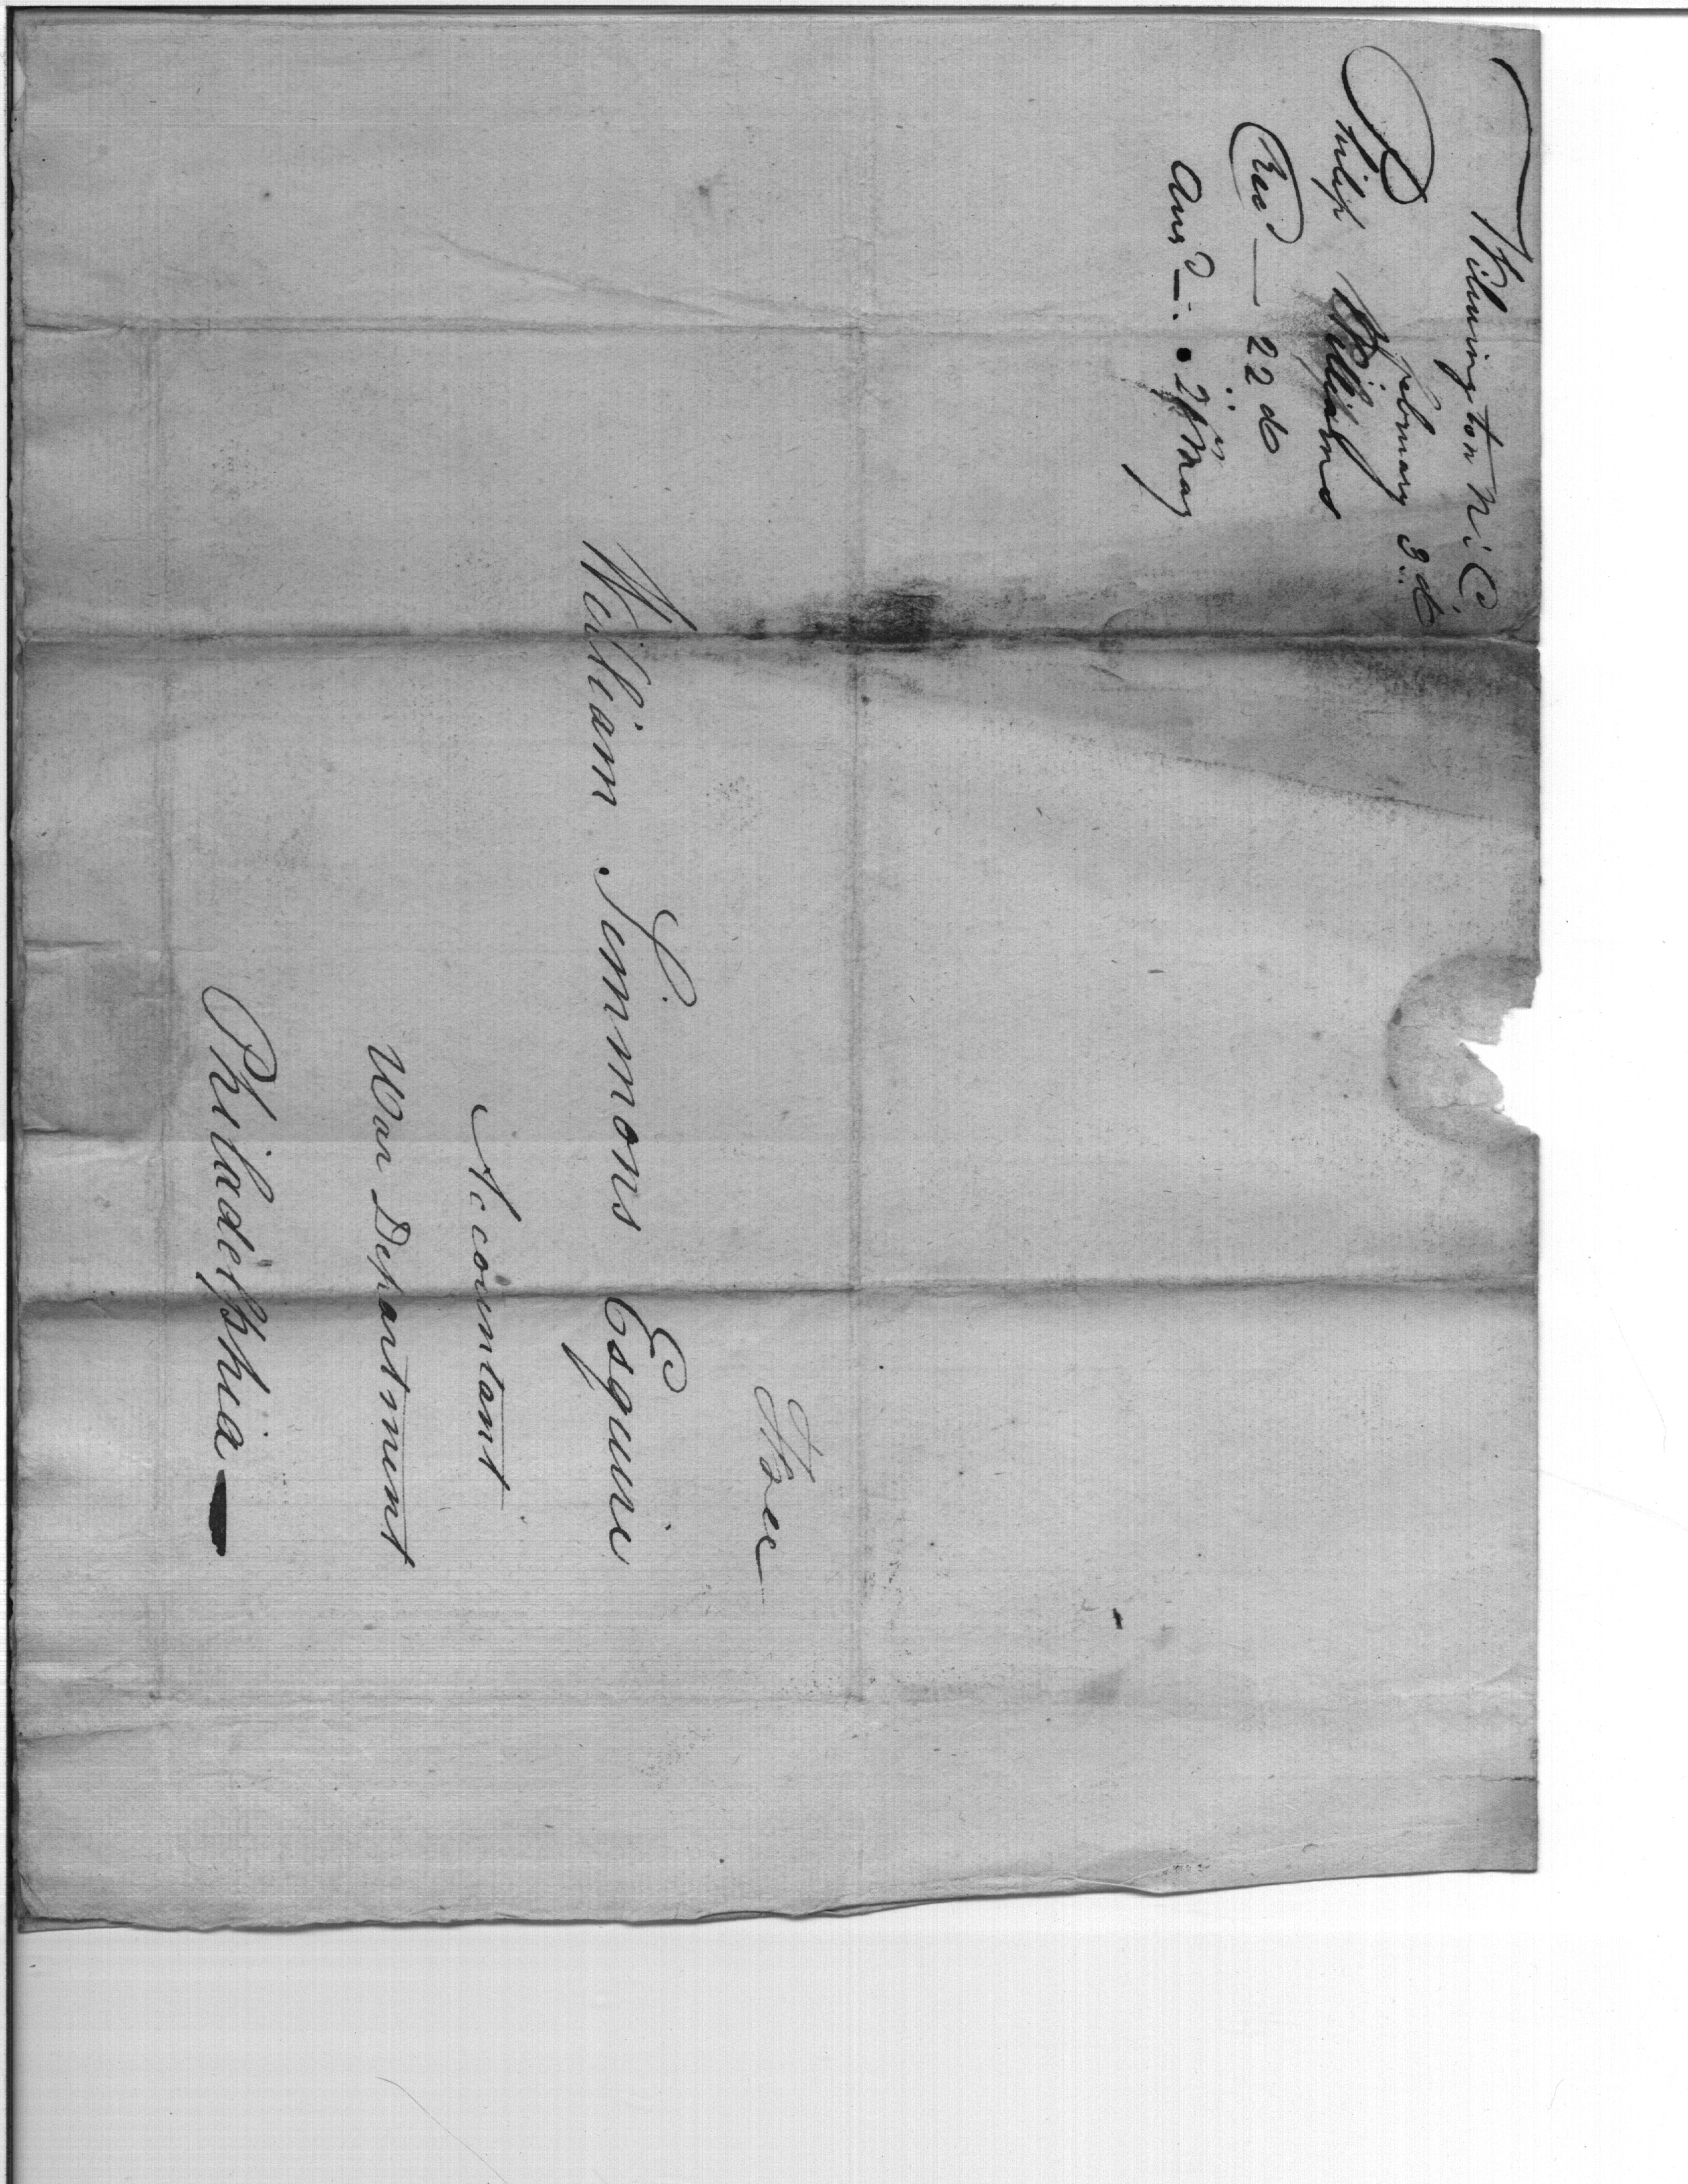 Wilmington N: C.
February 3. d
Philip Williams
Rec.d — 22 d
Ans.d — May
Free
William Simmons Esquire
Accountant
War Department
Philadelphia